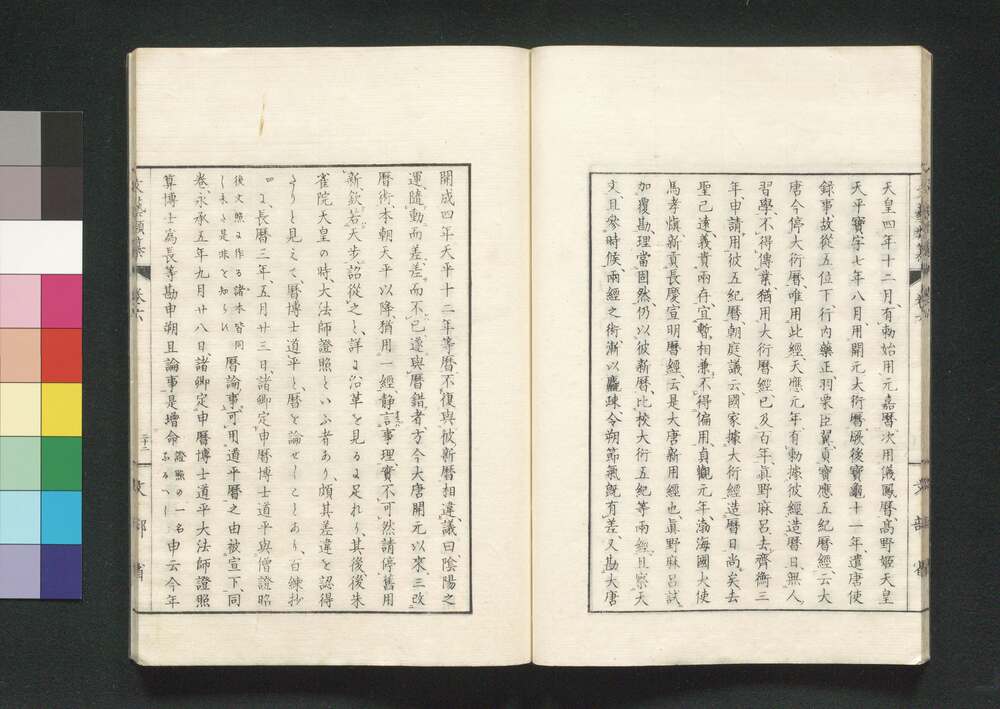 天皇四年十二月、有勅始用元嘉曆次用儀鳳曆、高野姬天皇
天平寶字七年八月、用開元大衍曆、厥後寶龜十一年、遣唐使
錄事故從五位下行內藥正羽栗臣翼貢寶應五紀曆經、云大
唐今停大衍曆、唯用此經、天應元年、有勅據彼經造曆日、無人
習學、不得傳業、猶用大衍曆經、已及百年、眞野麻呂、去齊衡三
年、申請用彼五紀曆、朝庭議云、國家據大衍經造曆日尚矣、去
聖已遠、義貴兩存、宜暫相兼、不得偏用、貞觀元年、渤海國大使
馬孝愼新貢長慶宣明曆經、云是大唐新用經也、眞野麻呂試
加覆勘、理當固然、仍以彼新曆、比校大衍五紀等兩經、且察天
文且參時候、兩經之術漸以麁踈、令朔節氣旣有差、又勘大唐
開成四年天平十二年等曆不復與彼新曆相違、議曰陰陽之
運、隨動而差、差而不已、遂與曆錯者、方今大唐開元以來、三改
曆術、本朝天平以降、猶用一經、靜言事理、實不可然請停舊用
新、欽若天步、詔從之と、詳に沿革を見るに足れり、其後後朱
雀院天皇の時、大法師證照といふ者あり、頗其差違を認得
さりと見えて、曆博士道平と、曆を論せしことあり、百練抄
四に、長曆三年、五月廿三日、諸卿定申曆博士道平與僧證昭
後文照に作る諸本皆同
し未た是非を知らす 曆論事、可用道平曆之由被宣下、同
卷、永承五年九月廿八日、諸卿定申曆博士道平大法師證照
算博士爲長等勘申朔旦論事、是增命 證照の一名 申云今年
文部省